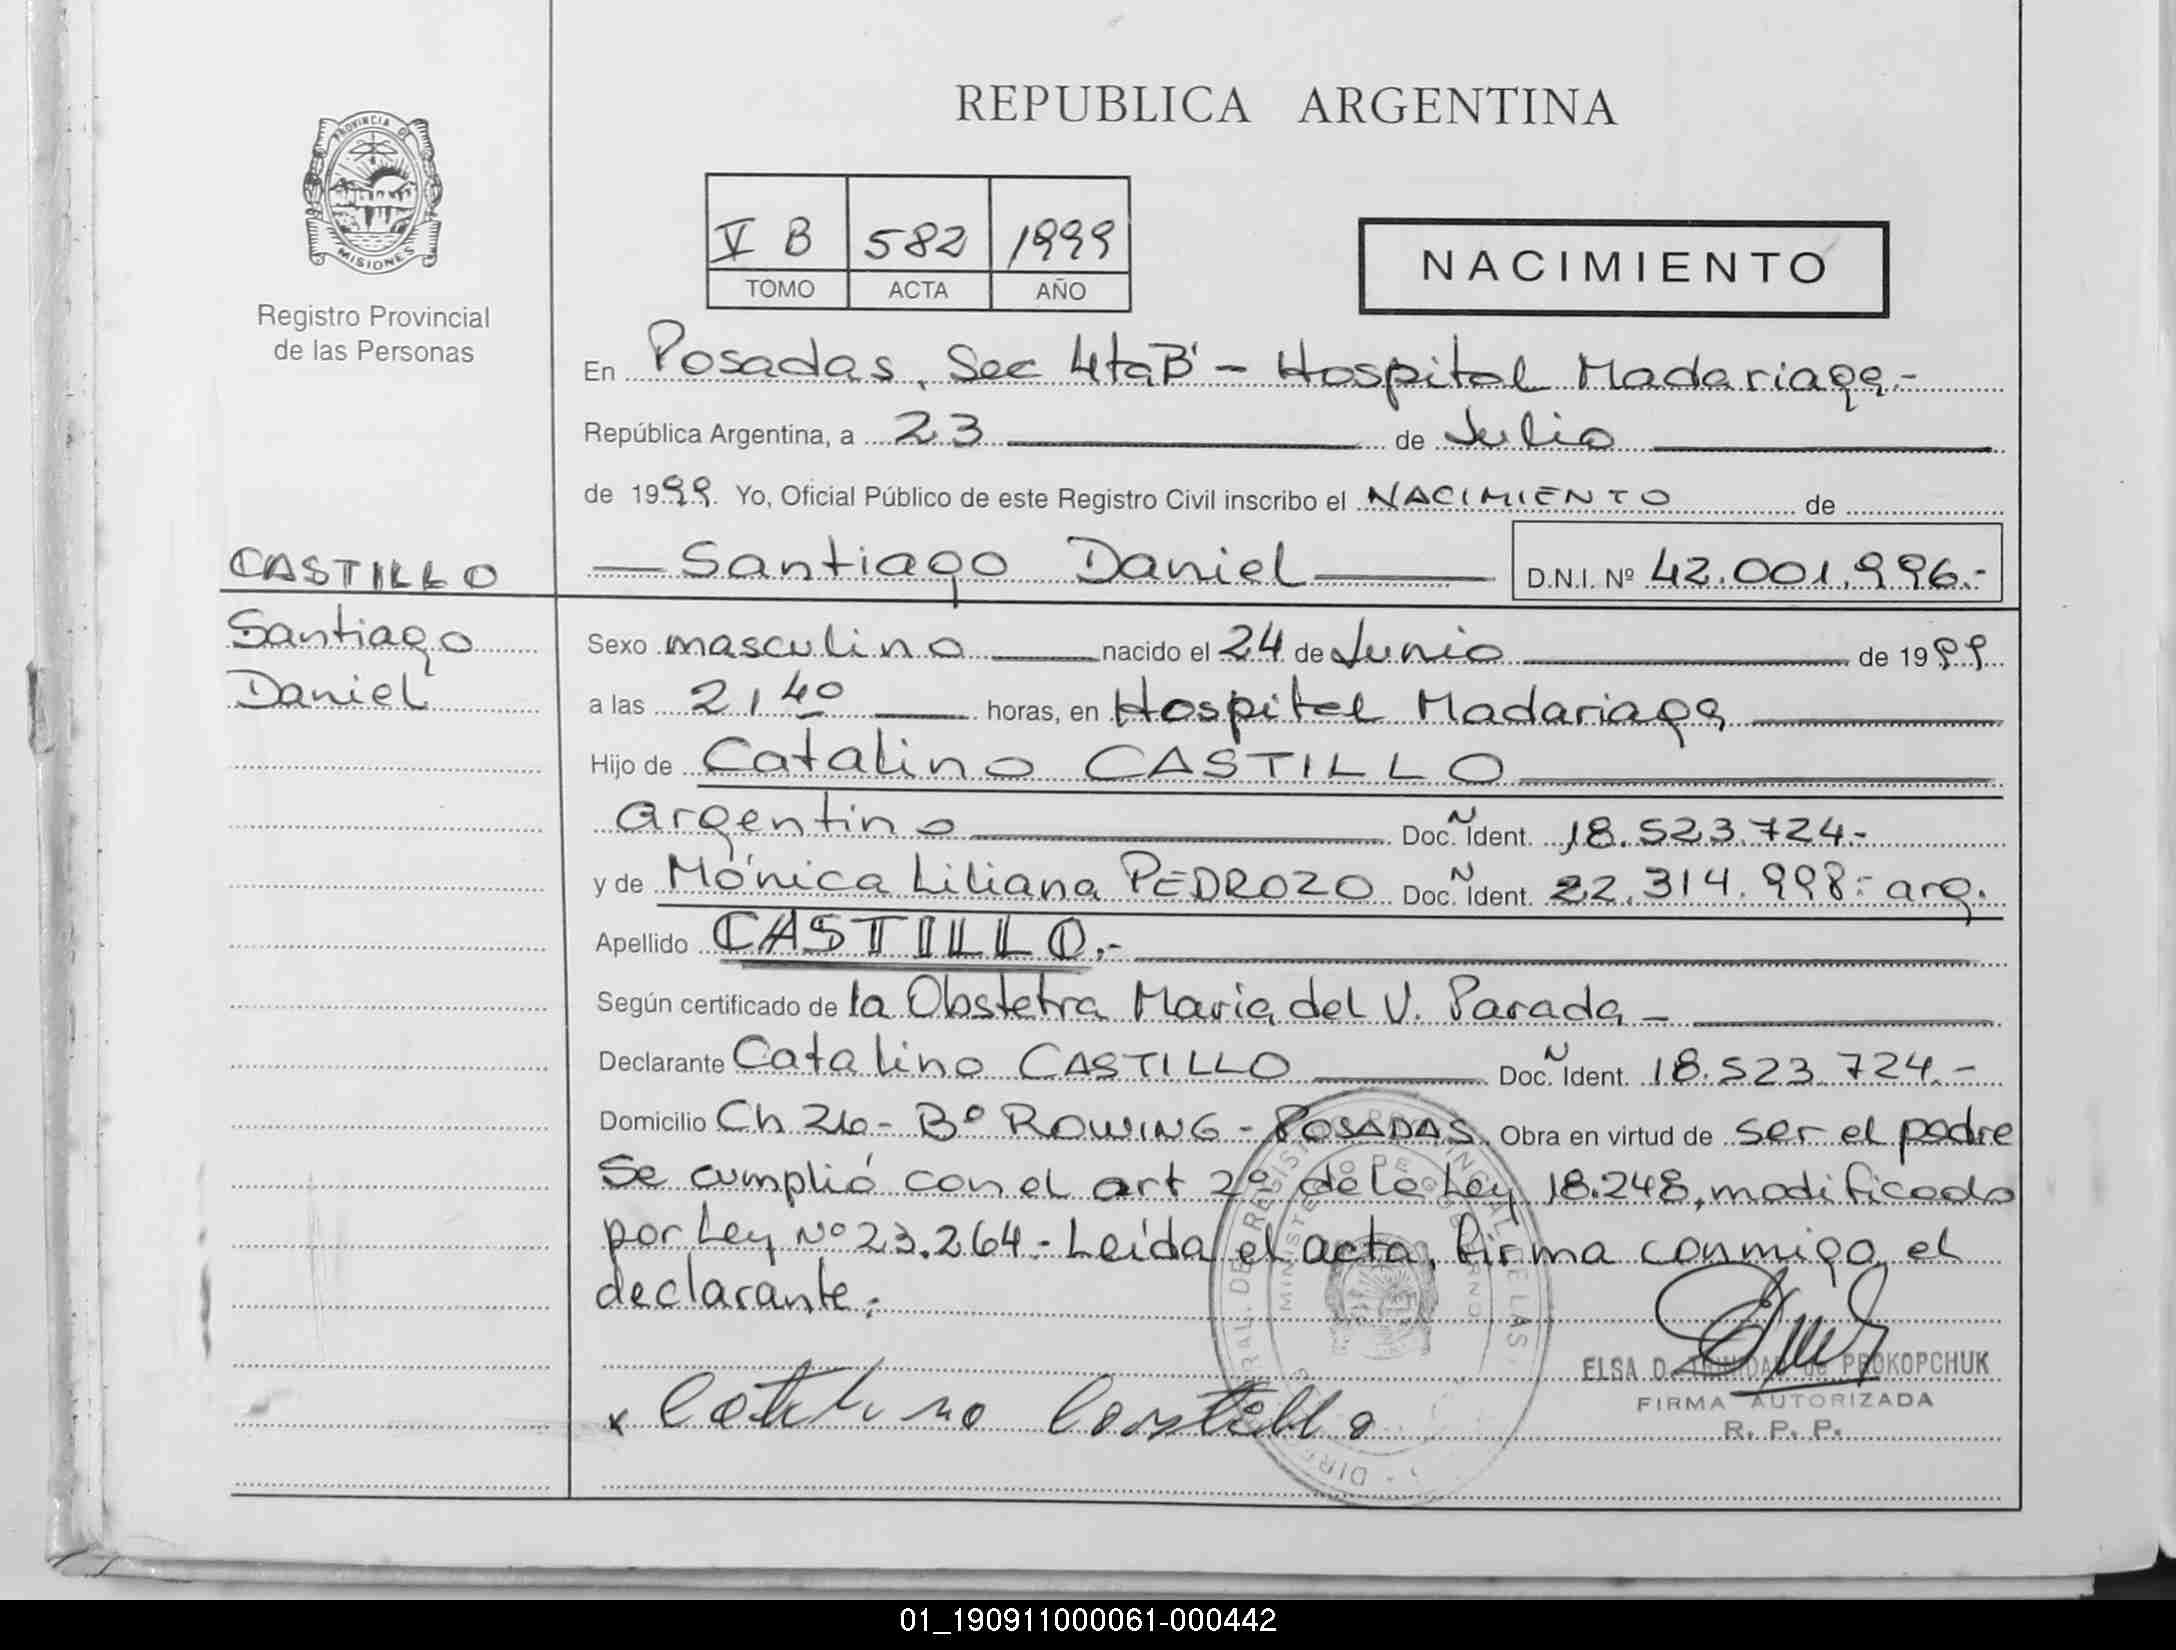 REPUBLICA ARGENTINA
PROVINCIA DE MISIONES
Registro Provincial
de las Personas
V B 582 1999
TOMO ACTA AÑO
NACIMIENTO
En Posadas, Sec 4ta B' - Hospital Madariaga.-
República Argentina, a 23 de Julio
de 1999. Yo, Oficial Público de este Registro Civil inscribo el NACIMIENTO de
Santiago Daniel D.N.I. Nº 42.001.996.-
CASTILLO
Santiago
Daniel
Sexo masculino nacido el 24 de Junio de 1999
a las 21 40 horas, en Hospital Madariaga
Hijo de Catalino CASTILLO
argentino Doc. Ident. N 18.523.724.-
y de Mónica Liliana PEDROZO Doc. Ident. N 22.314.998.- arg.
Apellido CASTILLO.-
Según certificado de la Obstetra Maria del V. Parada -
Declarante Catalino CASTILLO Doc. Ident. N 18.523.724.-
Domicilio Ch 26 - Bº ROWING - POSADAS. Obra en virtud de ser el padre
Se cumplió con el art 2º de la Ley 18.248, modificado
por Ley Nº 23.264.- Leída el acta, firma conmigo el
declarante.
x Catalino Castillo
ELSA D. TRINIDAD de PROKOPCHUK
FIRMA AUTORIZADA
R. P. P.
MINISTERIO DE GOBIERNO
01_190911000061-000442